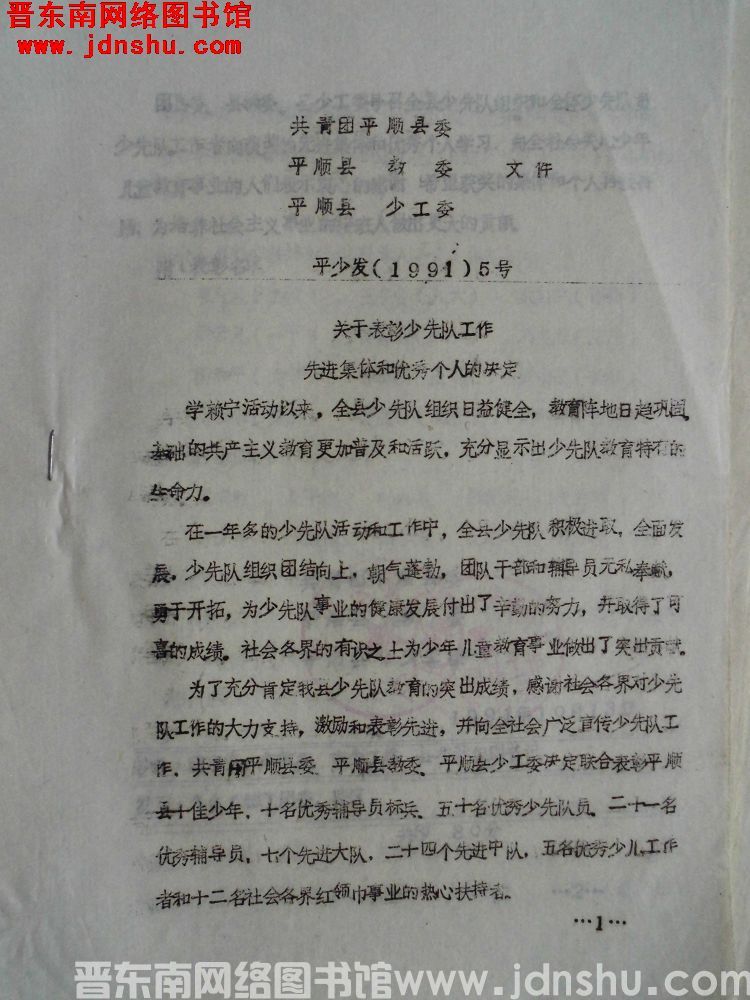 晋东南网络图书馆
www.jdnshu.com
共青团平顺县委
平顺县 教 委 文件
平顺县 少工委
平少发(1991)5号
关于表彰少先队工作
先进集体和优秀个人的决定
学赖宁活动以来，全县少先队组织日益健全，教育阵地日趋巩固，
基础的共产主义教育更加普及和活跃，充分显示出少先队教育特有的
生命力。
在一年多的少先队活动和工作中，全县少先队积极进取，全面发
展，少先队组织团结向上，朝气蓬勃，团队干部和辅导员无私奉献，
勇于开拓，为少先队事业的健康发展付出了辛勤的努力，并取得了可
喜的成绩。社会各界的有识之士为少年儿童教育事业做出了突出贡献。
为了充分肯定我县少先队教育的突出成绩，感谢社会各界对少先
队工作的大力支持，激励和表彰先进，并向全社会广泛宣传少先队工
作，共青团平顺县委、平顺县教委、平顺县少工委决定联合表彰平顺
县十佳少年、十名优秀辅导员标兵、五十名优秀少先队员、二十一名
优秀辅导员，七个先进大队，二十四个先进中队，五名优秀少儿工作
者和十二名社会各界红领巾事业的热心扶持者。
…1…
晋东南网络图书馆www.jdnshu.com